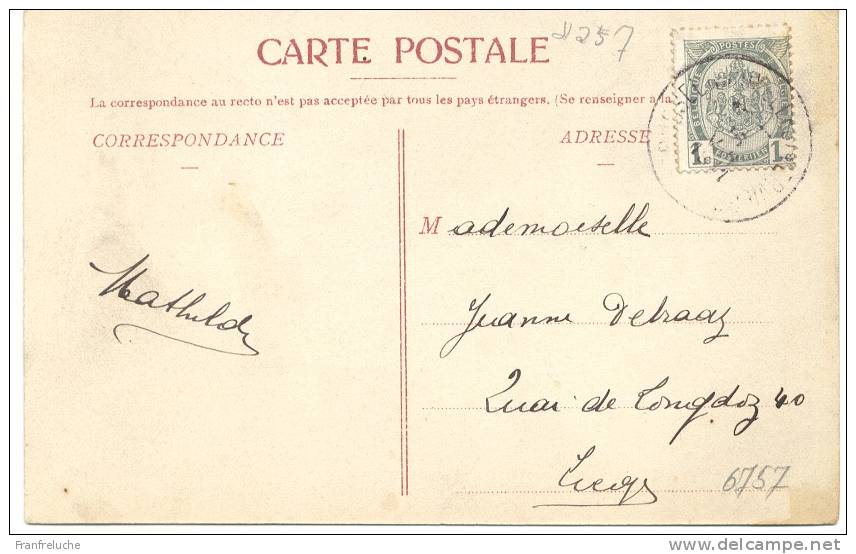 257
CARTE POSTALE
La correspondance au recto n'est pas acceptée par tous les pays étrangers. (Se renseigner à la
CORRESPONDANCE
ADRESSE
POSTES
1c 1c
Mademoiselle
Mathilde
Jeanne Delraaz
Quai de Longdoz 40
Liege
6757
Franfreluche
delcampe.net